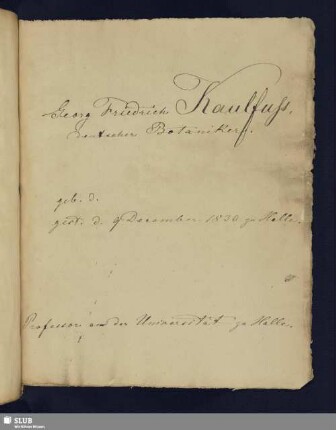 Georg Friedrich Kaulfuss,
deutscher Botaniker.
geb. d.
gest. d. 9 December 1830 zu Halle.
Professor an der Universität zu Halle.
SLUB
Wir führen Wissen.